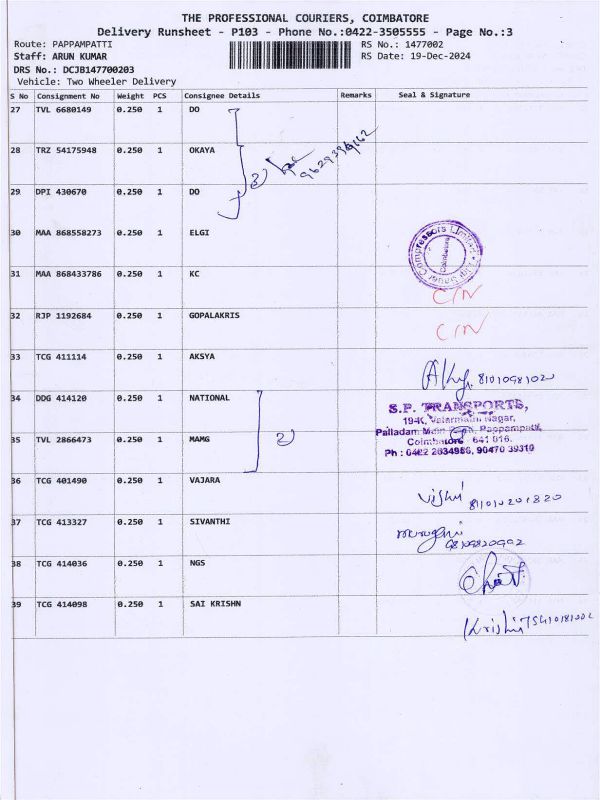 THE PROFESSIONAL COURIERS, COIMBATORE
Delivery Runsheet - P103 - Phone No.:0422-3505555 - Page No.:3
Route: PAPPAMPATTI RS No.: 1477002
Staff: ARUN KUMAR RS Date: 19-Dec-2024
DRS No.: DCJB147700203
Vehicle: Two Wheeler Delivery
S No Consignment No Weight PCS Consignee Details Remarks Seal & Signature
27 TVL 6680149 0.250 1 DO
28 TRZ 54175948 0.250 1 OKAYA
29 DPI 430670 0.250 1 DO
30 MAA 868558273 0.250 1 ELGI
31 MAA 868433786 0.250 1 KC
C/N
32 RJP 1192684 0.250 1 GOPALAKRIS
C/N
33 TCG 411114 0.250 1 AKSYA
34 DDG 414120 0.250 1 NATIONAL
S.P. TRANSPORTS,
19-K, Nagar,
35 TVL 2866473 0.250 1 MAMG
Palladam Main Pappampatti,
Coimbatore 641 016.
Ph : 0422 2634986, 90470 39310
36 TCG 401490 0.250 1 VAJARA
37 TCG 413327 0.250 1 SIVANTHI
38 TCG 414036 0.250 1 NGS
39 TCG 414098 0.250 1 SAI KRISHN